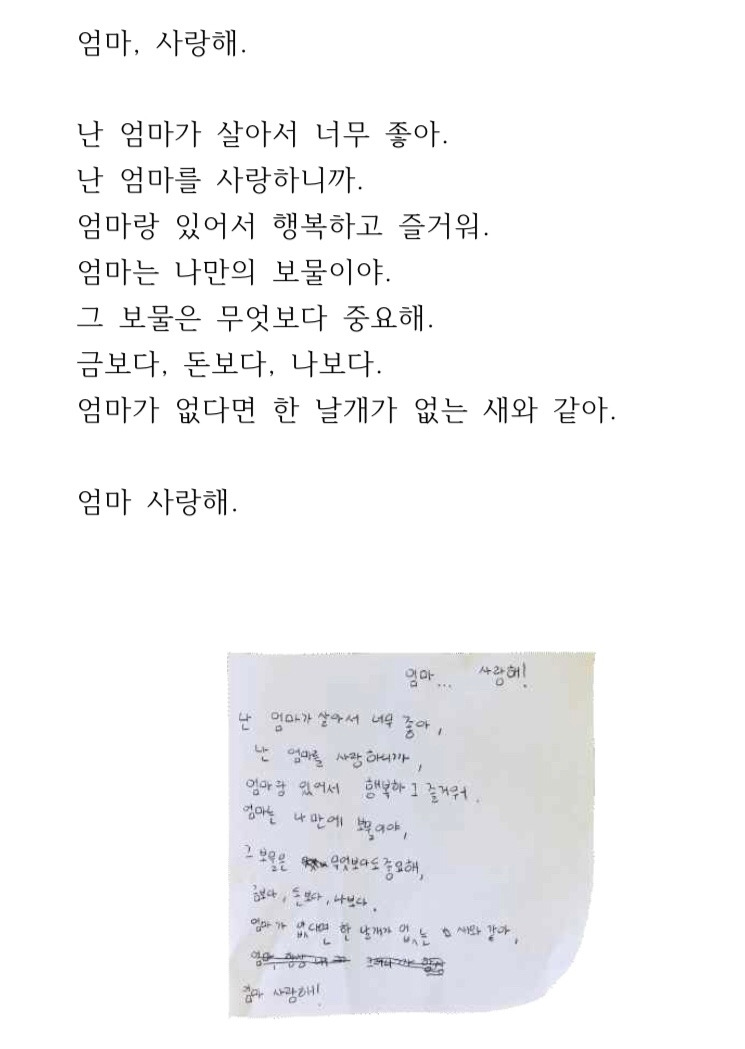 엄마, 사랑해.
난 엄마가 살아서 너무 좋아.
난 엄마를 사랑하니까.
엄마랑 있어서 행복하고 즐거워.
엄마는 나만의 보물이야.
그 보물은 무엇보다 중요해.
금보다, 돈보다, 나보다.
엄마가 없다면 한 날개가 없는 새와 같아.
엄마 사랑해.
엄마... 사랑해!
난 엄마가 살아서 너무 좋아,
난 엄마를 사랑하니까,
엄마랑 있어서 행복하고 즐거워.
엄마는 나만에 보물이야,
그 보물은 무엇보다도 중요해,
금보다, 돈보다, 나보다.
엄마가 없다면 한 날개가 없는 새와 같아,
엄마 사랑해!